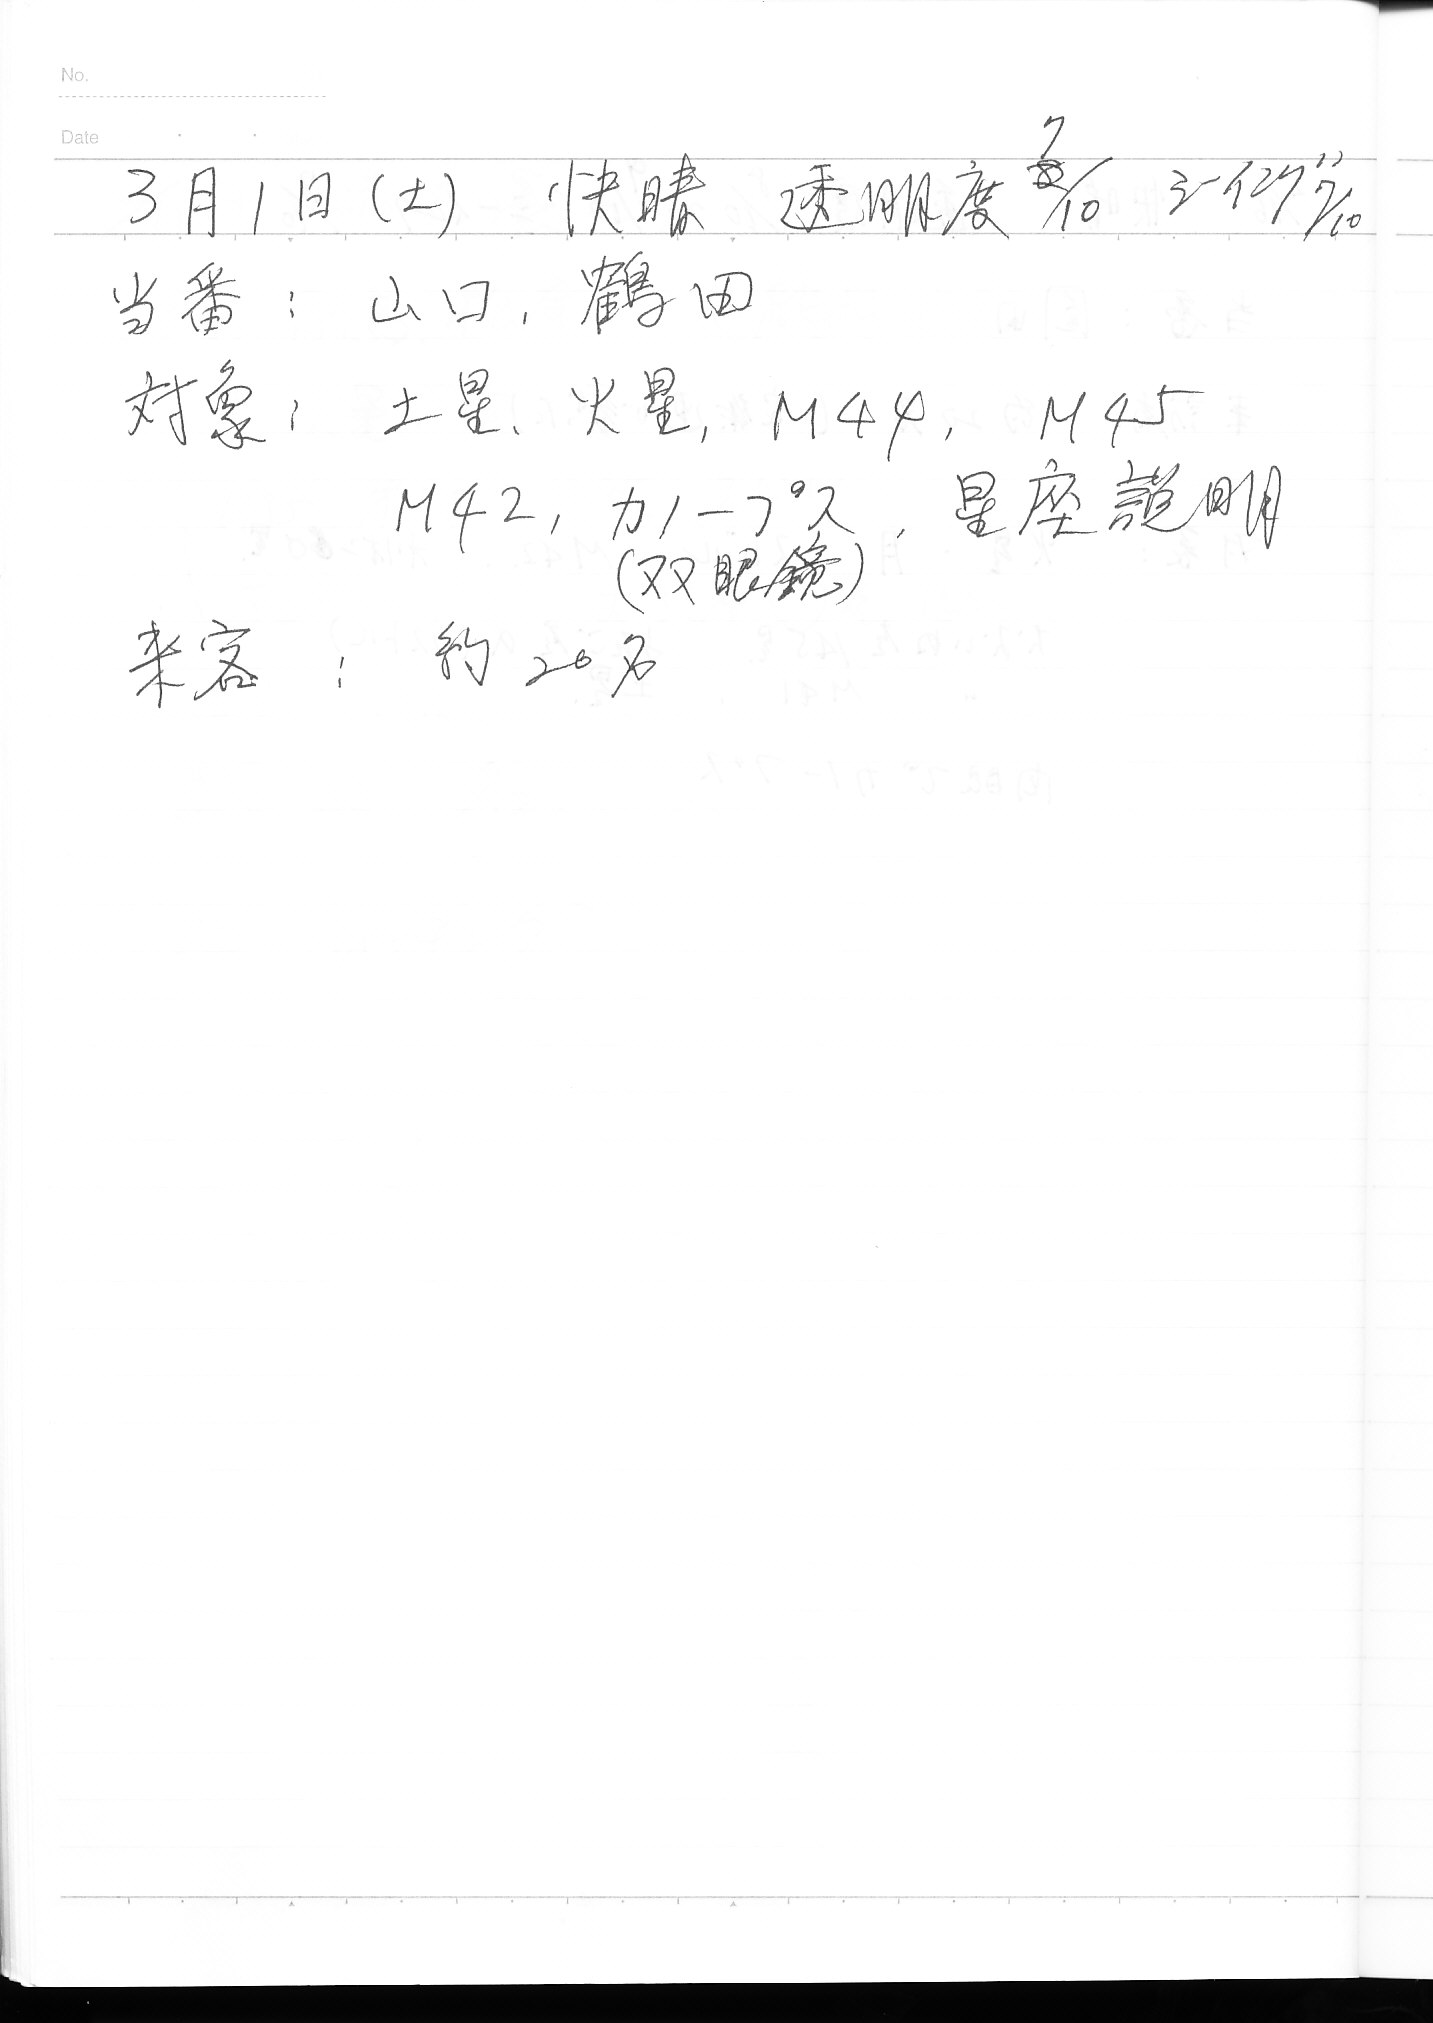 No.
Date
3月1日(土) 快晴 透明度 7/10 シーイング 7/10
当番: 山口, 鶴田
対象: 土星, 火星, M44, M45
M42, カノープス, 星座説明
(双眼鏡)
来客: 約20名